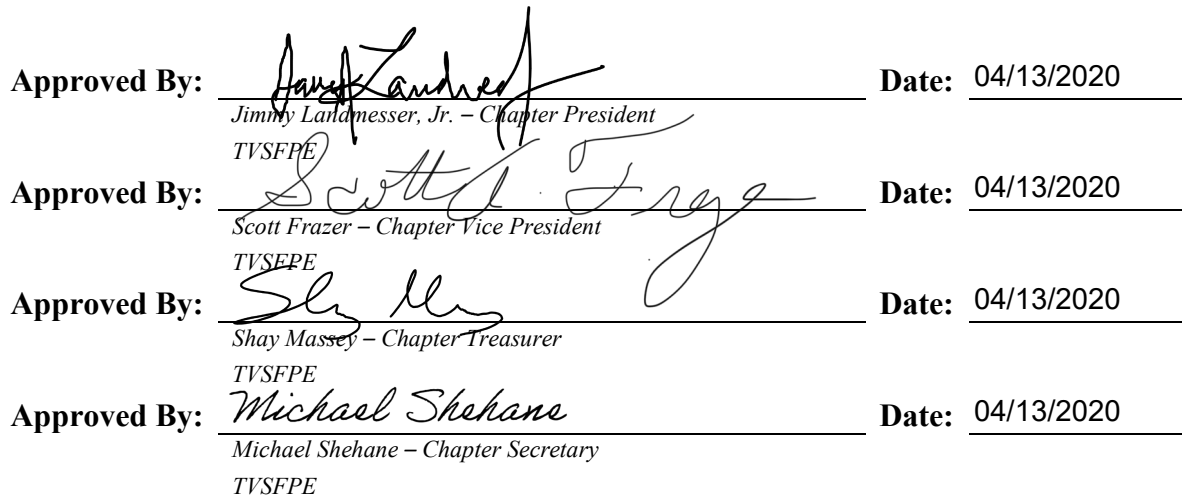 Approved By: Jimmy Landmesser Date: 04/13/2020
Jimmy Landmesser, Jr. – Chapter President
TVSFPE
Approved By: Scott A. Frazer Date: 04/13/2020
Scott Frazer – Chapter Vice President
TVSFPE
Approved By: Shay Massey Date: 04/13/2020
Shay Massey – Chapter Treasurer
TVSFPE
Approved By: Michael Shehane Date: 04/13/2020
Michael Shehane – Chapter Secretary
TVSFPE